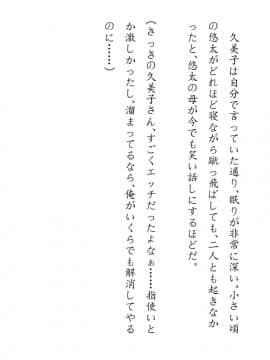 久美子は自分で言っていた通り、眠りが非常に深い。小さい頃
の悠太がどれほど寝ながら蹴っ飛ばしても、二人とも起きなか
ったと、悠太の母が今でも笑い話しにするほどだ。
(さっきの久美子さん、すごくエッチだったよなぁ……指使いと
か激しかったし。溜まってるなら、俺がいくらでも解消してやる
のに……)